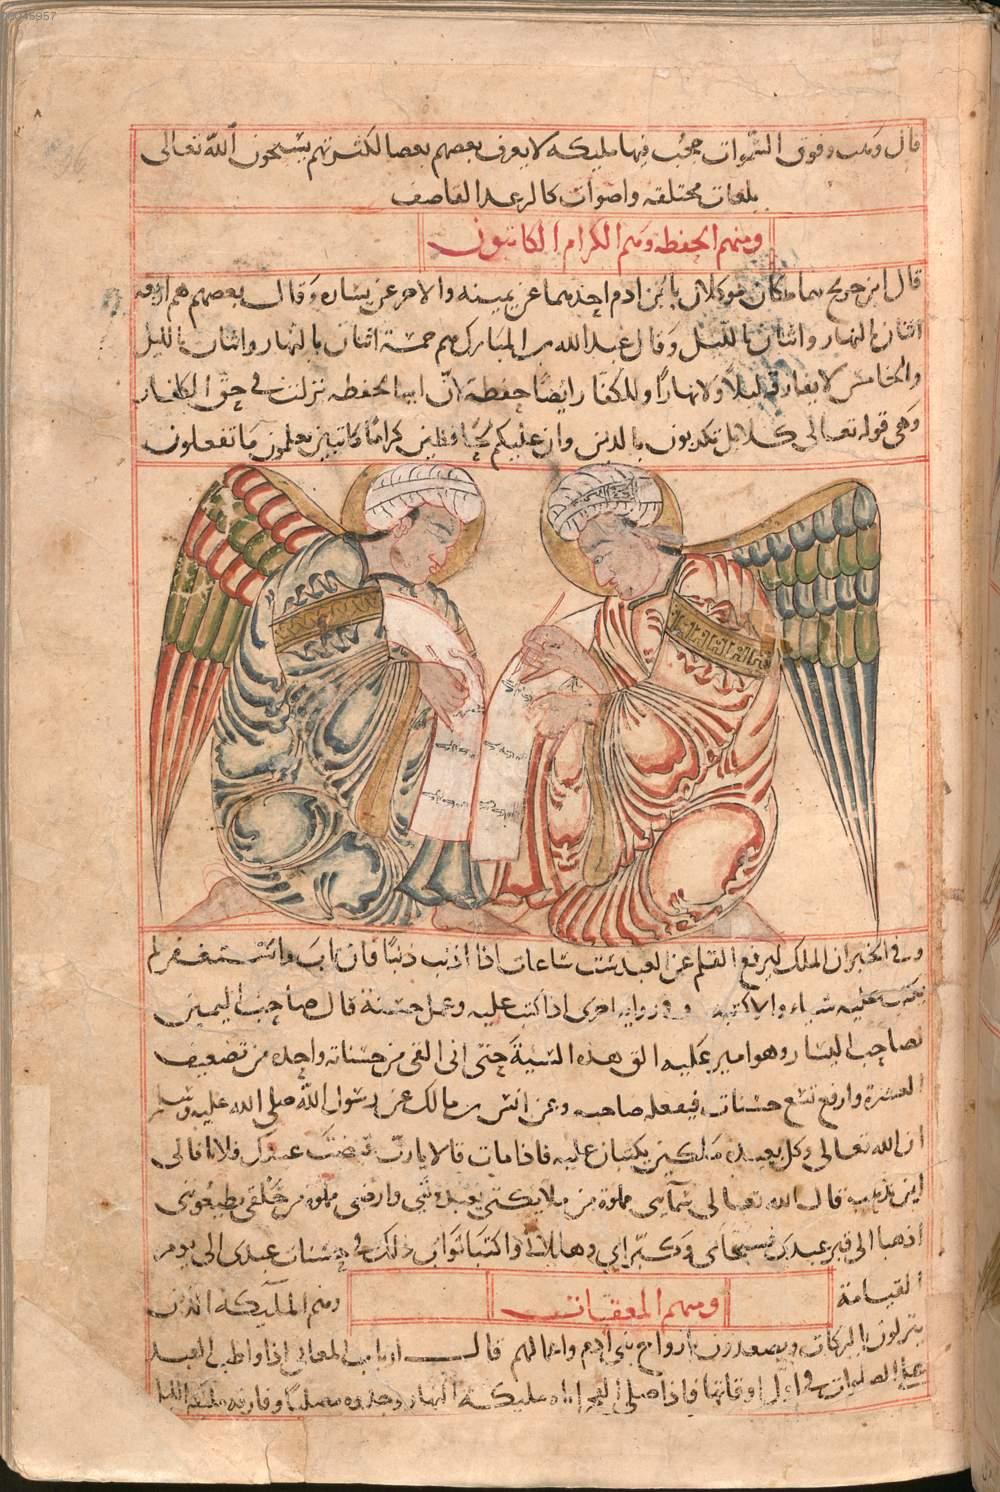 قال وهب وفوق السموات حجب فيها مليكه لا يعرف بعضهم بعضا لكثرتهم يسبحون الله تعالى
بلغات مختلفه واصوات كالرعد القاصف
ومنهم الحفظه وهم الكرام الكاتبون
قال ابن جريح هما ملكان موكلان بابن ادم احدهما عن يمينه والاخر عن يساره وقال بعضهم هم اربعه
اثنان بالنهار واثنان بالليل وقال عبد الله بن المبارك هم خمسة اثنان بالنهار واثنان بالليل
والخامس لا يفارقه ليلاً ولا نهارًا وللكفار ايضًا حفظة لانّ اية الحفظه نزلت في حق الكفار
وهى قوله تعالى كلا بل تكذبون بالدين وان عليكم لحافظين كرامًا كاتبين يعلمون ما تفعلون
وفى الخبر ان الملك ليرفع القلم عن العبد ست ساعات اذا اذنب ذنبًا فان تاب واستغفر لم
يكتب عليه شياء والا كتبه وفى رواية اخرى اذا كتب عليه وعمل حسنة قال صاحب اليمين
لصاحب اليسار وهو امير عليه الق هذه السيئة حتى انى القى من حسناته واحده من تضعيف
العشرة وارفع تسع حسنات فيفعله صاحبه وعن انس بن مالك عن رسول الله صلى الله عليه وسلم
ان الله تعالى وكل بعبده ملكين يكتبان عليه فاذا مات قالا يا رب قبضت عبدك فلانا فالى
اين نذهب قال الله تعالى سمآئى مملوة من ملايكتى يعبدوننى وارضى مملوة من خلقى يطيعوننى
اذهبا الى قبر عبدى فسبحانى وكبرانى وهللانى واكتبا ثواب ذلك فى حسنات عبدى الى يوم
القيامة
ومنهم المعقبات
ومنهم المليكه الذين
ينزلون بالبركات ويصعدون بارواح بنى ادم واعمالهم قال ارباب المعانى اذا واظب العبد
على الصلوات فى اول اوقاتها فاذا صلى الفجر اتاه مليكة النهار وجدوه مصليا وفارقه مليكة الليل